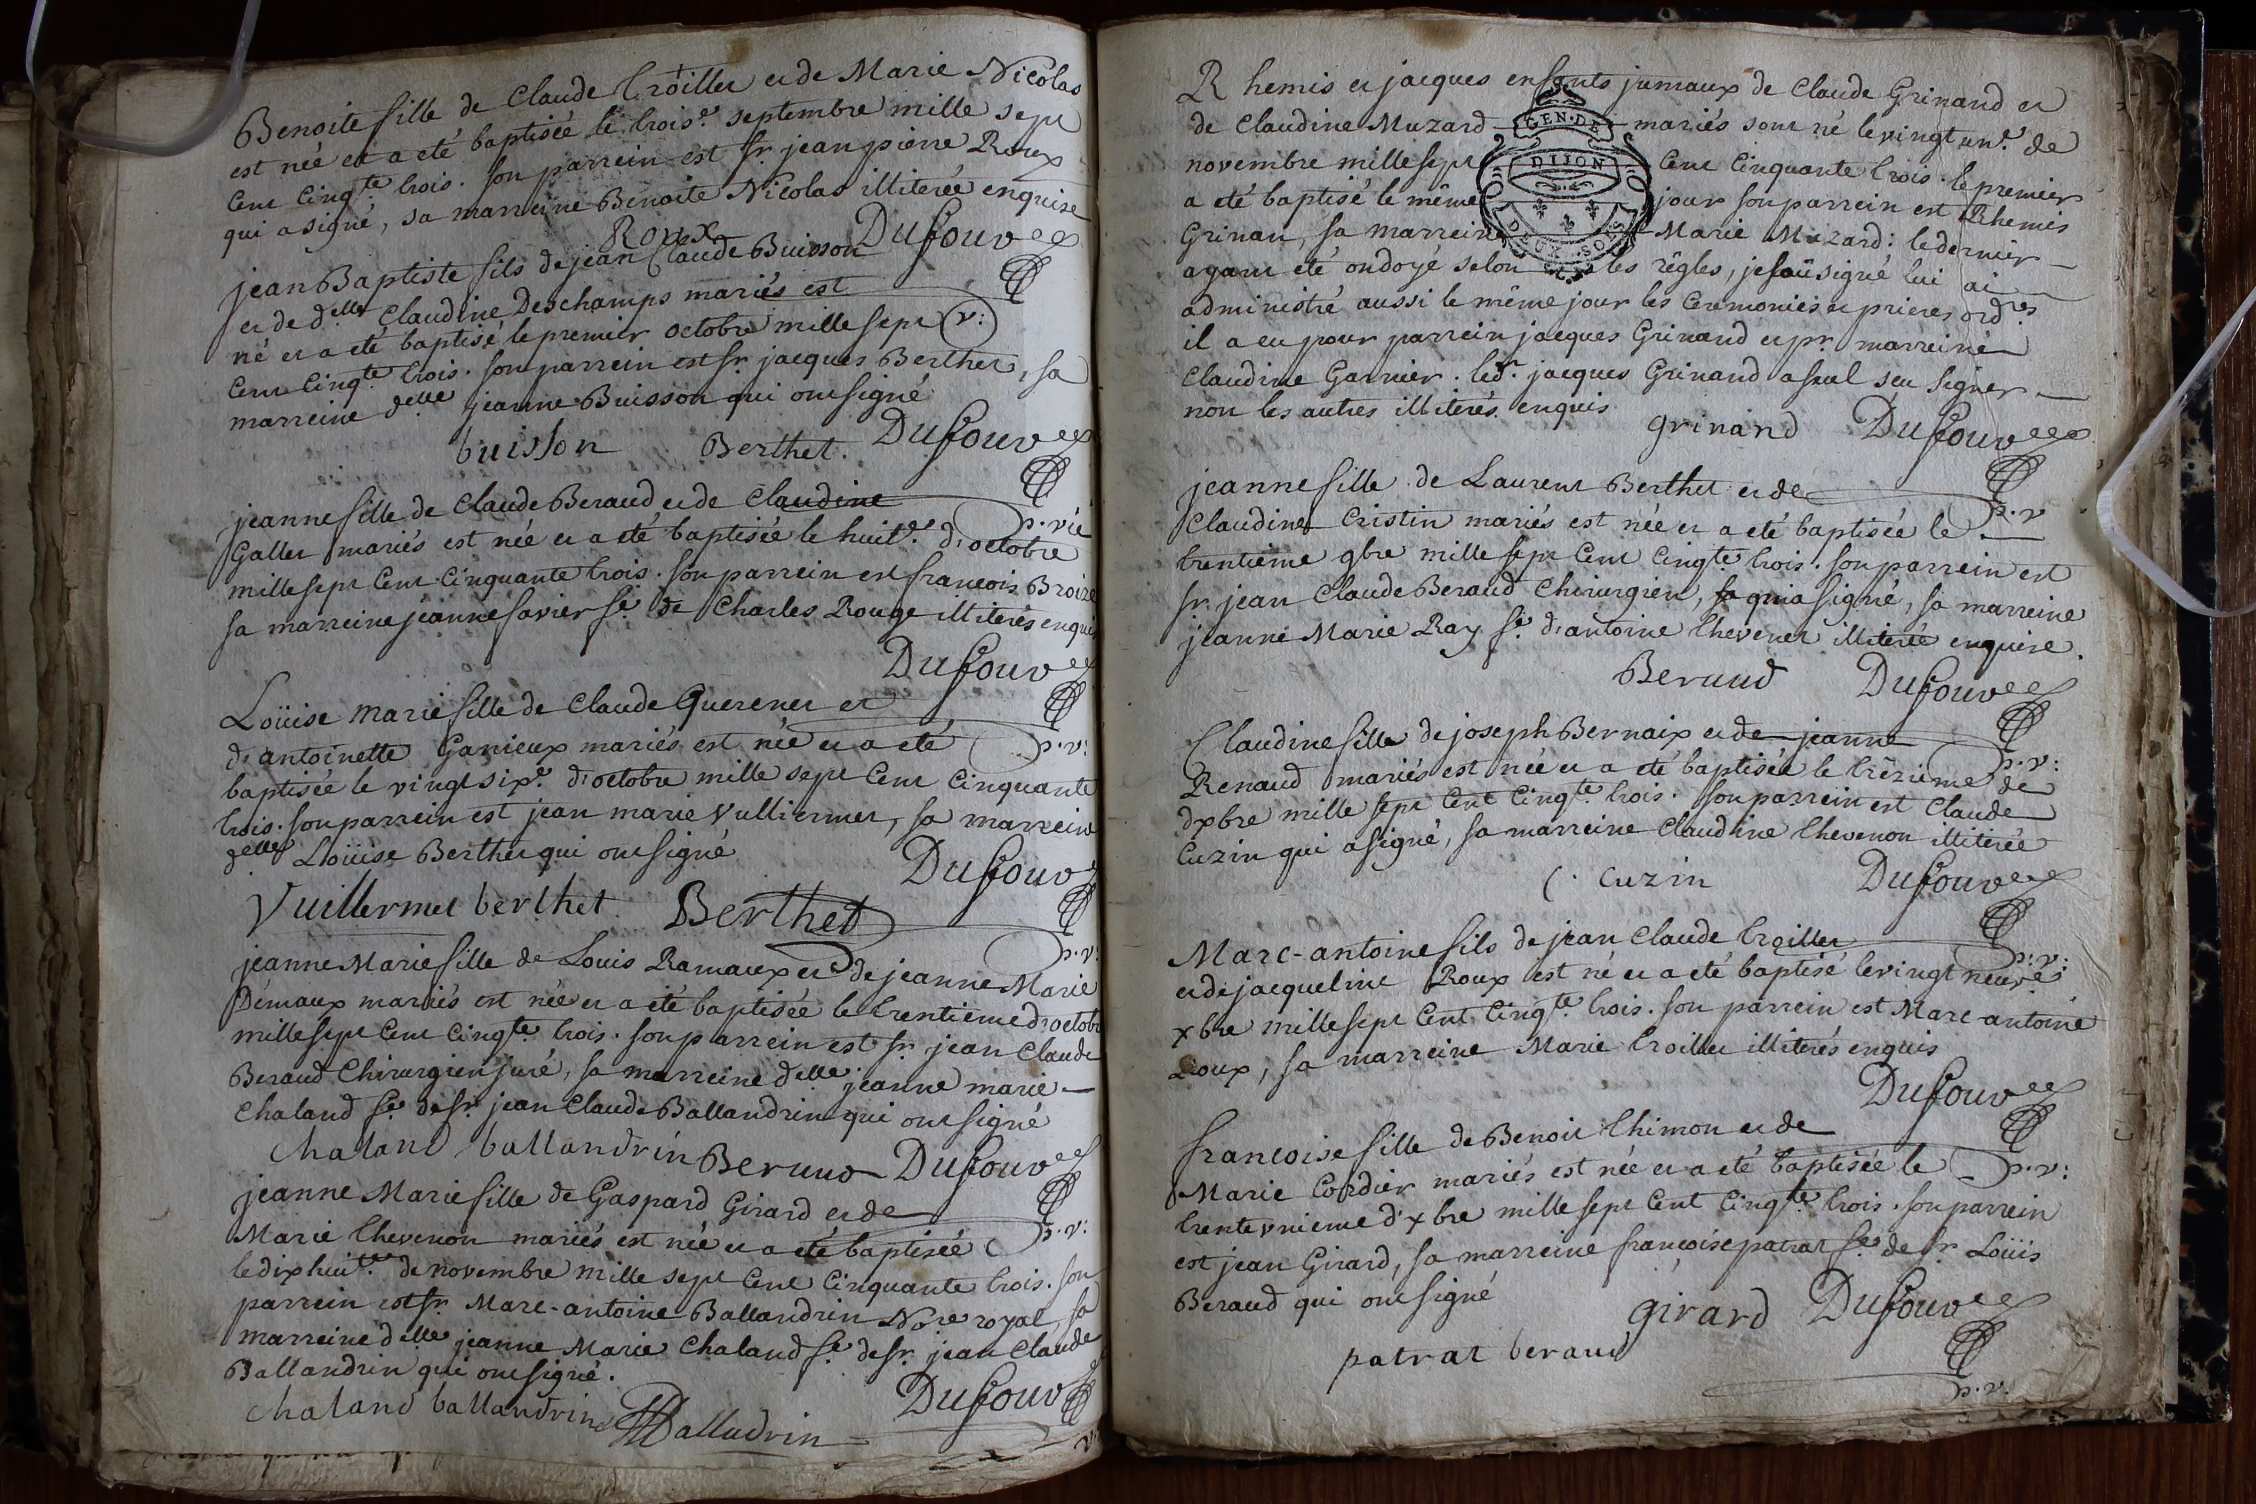 Benoite fille de Claude Troiller et de Marie Nicolas
est née et a eté baptisée le trois.e septembre mille sept
cent cinq.te trois. son parrein est sr. jean pierre Roux
qui a signé, sa marreine Benoite Nicolas illiterée enquise
Roux Dufour
jean Baptiste fils de jean Claude Buisson
et de d.elle Claudine Deschamps mariés est
né et a eté baptisé le premier octobre mille sept
cent cinq.te trois. son parrein est sr. jacques Berthet, sa
marreine d.elle jeanne Buisson qui ont signé
buisson Berthet. Dufour
jeanne fille de Claude Beraud et de Claudine
Gallet mariés est née et a eté baptisée le huit.e d'octobre
mille sept cent cinquante trois. son parrein est francois Broize
sa marreine jeanne favier fe. de Charles Rouge illiterés enquis
Dufour
Loüise Marie fille de Claude Querenet et
d'antoinette Ganieux mariés est née et a eté p.v:
baptisée le vingt six.e d'octobre mille sept cent cinquante
trois. son parrein est jean marie Vulliermet, sa marreine
d.elle Loüise Berthet qui ont signé
Dufour
Vuillermet berthet Berthet
p.v:
jeanne Marie fille de Louis Ramaux et de jeanne Marie
Démaux mariés est née et a eté baptisée le trentieme d'octobre
mille sept cent cinq.te trois. son parrein est sr. jean Claude
Beraud Chirurgien juré, sa marreine d.elle jeanne marie
Chaland fe. de sr. jean Claude Ballandrin qui ont signé
Chaland ballandrin Beraud Dufour
jeanne Marie fille de Gaspard Girard et de
Marie Thevenon mariés est née et a eté baptisée p.v:
le dix huit.e de novembre mille sept cent cinquante trois. son
parrein est sr. Marc-antoine Ballandrin No.re royal, sa
marreine d.elle jeanne Marie Chaland fe. de sr. jean Claude
Ballandrin qui ont signé.
Dufour
chaland ballandrin Balladrin
Rhemis et jacques enfants jumaux de Claude Grinand et
de Claudine Muzard mariés sont né le vingt un.e de
novembre mille sept cent cinquante trois. le premier
a eté baptisé le même jour son parrein est Rhemis
Grinan, sa marreine Marie Muzard: le dernier
ayant eté ondoyé selon les règles, je soüsigné lui ai
administré aussi le même jour les ceremonies et prieres ord.res
il a eu pour parrein jacques Grinand et pr. marreine
Claudine Garnier. led.t jacques Grinand a seul seu signer
non les autres illiterés enquis
grinand Dufour
GEN. DE
DIJON
DEUX SOLS
jeanne fille de Laurent Berthet et de
Claudine Cristin mariés est née et a eté baptisée le p.v
trentieme 9bre mille sept cent cinq.te trois. son parrein est
sr. jean Claude Beraud Chirurgien, qui a signé, sa marreine
jeanne Marie Ray fe. d'antoine Thevenet illiterée enquise.
Beraud Dufour
Claudine fille de joseph Bernaix et de jeanne
Renaud mariés est née et a eté baptisée le trezieme de p.v:
dxbre mille sept cent cinq.te trois. son parrein est Claude
Cuzin qui a signé, sa marreine Claudine Thevenon illiterée
C. Cuzin Dufour
Marc-antoine fils de jean Claude Troiller p.v:
et de jacqueline Roux est né et a eté baptisé le vingt neuv.e
xbre mille sept cent cinq.te trois. son parrein est Marc-antoine
Roux, sa marreine Marie Troiller illiterés enquis
Dufour
francoise fille de Benoit Thimon et de
Marie Cordier mariés est née et a eté baptisée le p.v:
trente unieme d'xbre mille sept cent cinq.te trois. son parrein
est jean Girard, sa marreine francoise patrat fe. de sr. Loüis
Beraud qui ont signé
girard Dufour
patrat beraud
p.v.